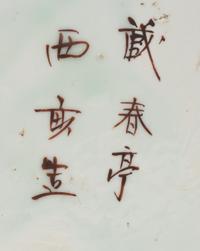 蔵春亭
西亥造